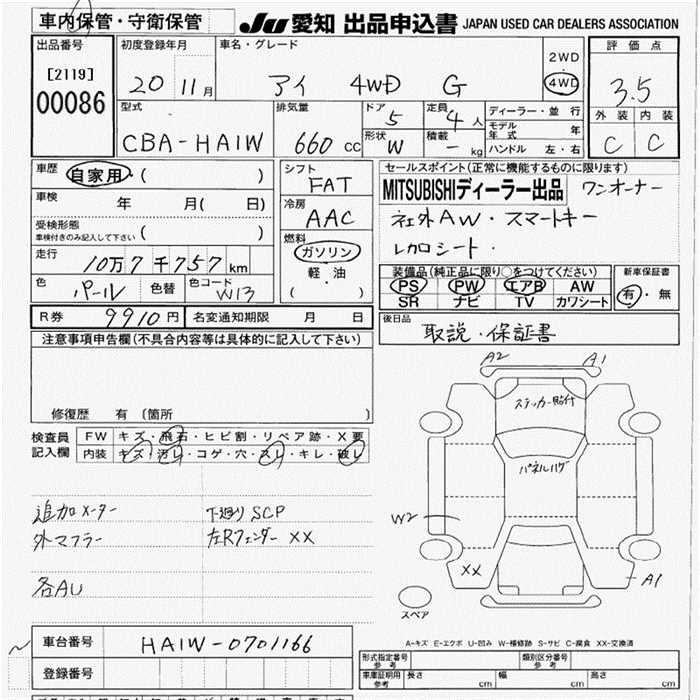 車内保管・守衛保管
JU 愛知 出品申込書 JAPAN USED CAR DEALERS ASSOCIATION
出品番号
[2119]
00086
初度登録年月
20 11月
車名・グレード
アイ 4WD G
2WD
4WD
評価点
3.5
外装 内装
C C
型式
CBA-HA1W
排気量
660 cc
ドア
5
定員
4人
形状
W
積載
- kg
ディーラー・並行
モデル年式 年
ハンドル 左・右
車歴
自家用・( )
車検 年 月( 日)
受検形態
車検付きのみ記入して下さい ( )
走行
10万7千757km
色
パール
色替
色コード
W13
シフト
FAT
冷房
AAC
燃料
ガソリン
軽・油
( )
R券 9910円
名変通知期限 月 日
セールスポイント(正常に機能するものに限ります)
MITSUBISHIディーラー出品 ワンオーナー
社外AW・スマートキー
レカロシート・
装備品(純正品に限り○をつけてください)
PS PW エアB AW
SR ナビ TV カワシート
新車保証書
有・無
後日品
取説・保証書
注意事項申告欄(不具合内容等は具体的に記入して下さい)
修復歴 有 〔箇所 〕
検査員記入欄
FW キズ・飛石・ヒビ割・リペア跡・X要
内装 キズ・汚レ・コゲ・穴・スレ・キレ・破レ
追加メーター
外マフラー
各AU
下廻りSCP
左Rフェンダー XX
A2 A1
ステッカー貼付
パネルハゲ
W2
XX
A1
スペア
A-キズ E-エクボ U-凹み W-補修跡 S-サビ C-腐食 XX-交換済
車台番号 HA1W-0701166
登録番号
形式指定番号 参考
類別区分番号 参考
車庫証明用 参考
長さ cm
幅 cm
高さ cm